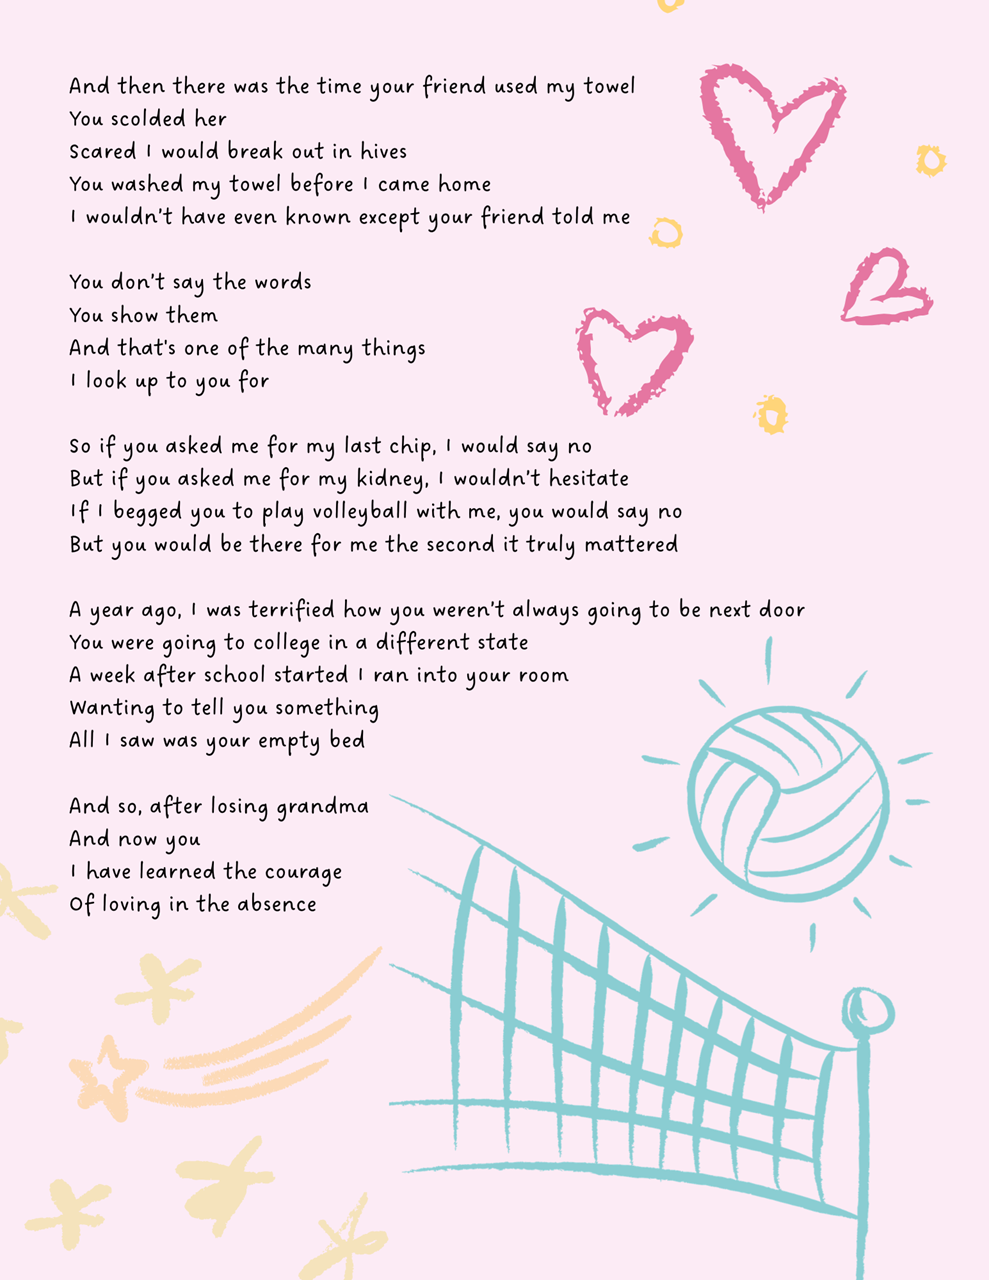 And then there was the time your friend used my towel
You scolded her
Scared I would break out in hives
You washed my towel before I came home
I wouldn't have even known except your friend told me
You don't say the words
You show them
And that's one of the many things
I look up to you for
So if you asked me for my last chip, I would say no
But if you asked me for my kidney, I wouldn't hesitate
If I begged you to play volleyball with me, you would say no
But you would be there for me the second it truly mattered
A year ago, I was terrified how you weren't always going to be next door
You were going to college in a different state
A week after school started I ran into your room
Wanting to tell you something
All I saw was your empty bed
And so, after losing grandma
And now you
I have learned the courage
Of loving in the absence